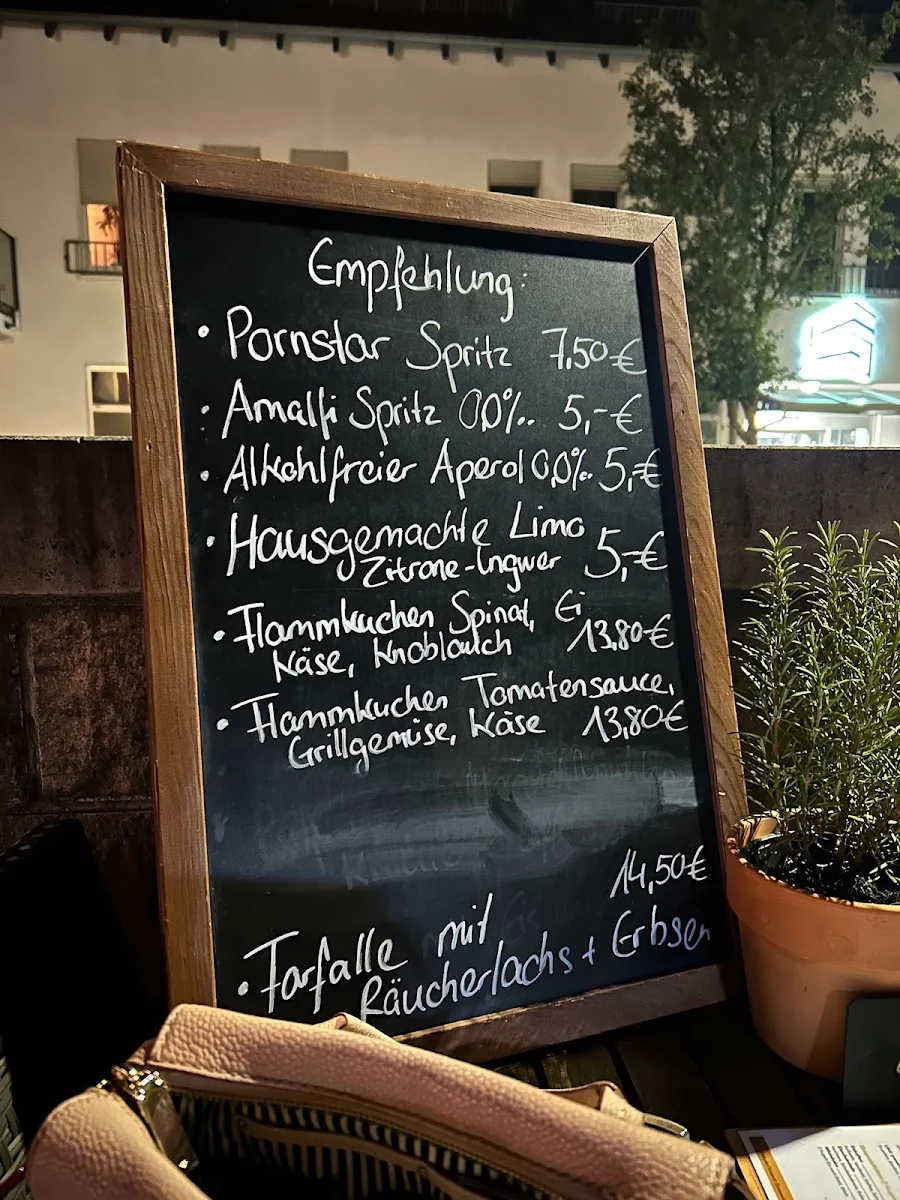 Empfehlung:
• Pornstar Spritz 7,50 €
• Amalfi Spritz 0,0%.. 5,- €
• Alkohlfreier Aperol 0,0%. 5,-€
• Hausgemachte Limo
Zitrone-Ingwer 5,-€
• Flammkuchen Spinat, Ei
Käse, Knoblauch 13,80€
• Flammkuchen Tomatensauce,
Grillgemüse, Käse 13,80€
14,50€
• Farfalle mit
Räucherlachs + Erbsen